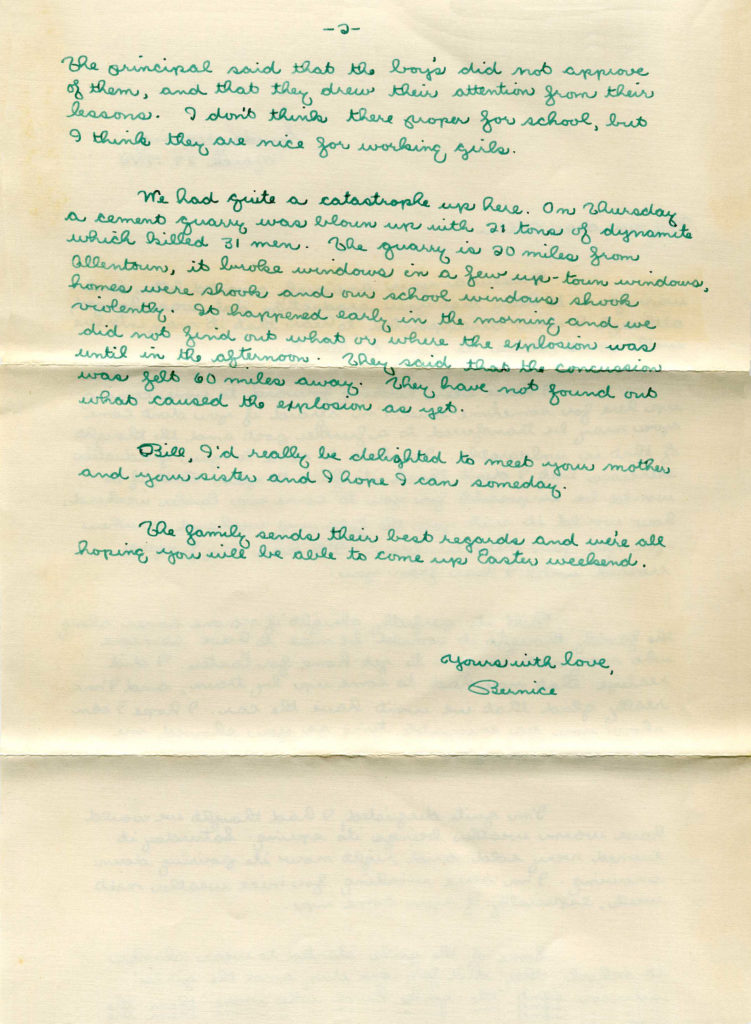 -2-
The principal said that the boy's did not approve
of them, and that they drew their attention from their
lessons. I don't think there proper for school, but
I think they are nice for working girls.
We had quite a catastrophe up here. On Thursday
a cement quarry was blown up with 21 tons of dynamite
which killed 31 men. The quarry is 20 miles from
Allentown, it broke windows in a few up-town windows,
homes were shook and our school windows shook
violently. It happened early in the morning and we
did not find out what or where the explosion was
until in the afternoon. They said that the concussion
was felt 60 miles away. They have not found out
what caused the explosion as yet.
Bill, I'd really be delighted to meet your mother
and your sister and I hope I can someday.
The family sends their best regards and we're all
hoping you will be able to come up Easter weekend.
Yours with love,
Bernice